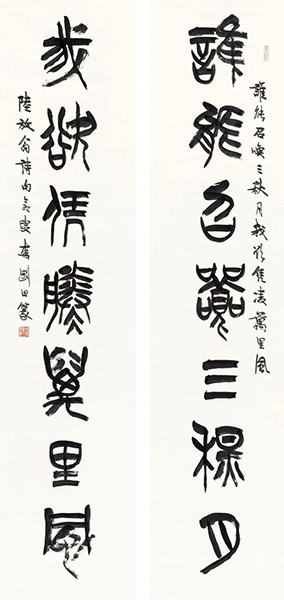 誰能召喚三秋月
誰能召喚三秋月我欲凭凌萬里風
我欲凭凌萬里風
陸放翁詩句 李剛田篆